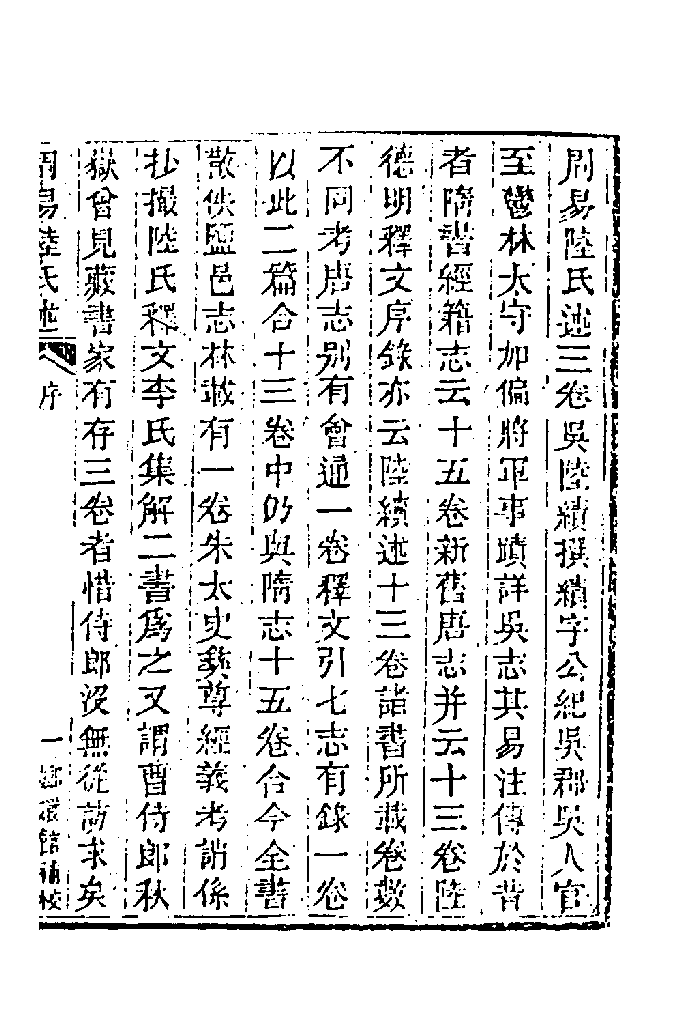 周易陸氏述三卷吳陸績撰績字公紀吳郡吳人官
至鬱林太守加偏將軍事蹟詳吳志其易注傳於昔
者隋書經籍志云十五卷新舊唐志并云十三卷陸
德明釋文序錄亦云陸績述十三卷諸書所載卷數
不同考唐志别有會通一卷釋文引七志有錄一卷
以此二篇合十三卷中仍與隋志十五卷合今全書
散佚鹽邑志林載有一卷朱太史彝尊經義考謂係
抄撮陸氏釋文李氏集解二書爲之又謂曹侍郎秋
嶽曾見藏書家有存三卷者惜侍郎没無從訪求矣
周易陸氏述
序
一
嫏嬛館補校